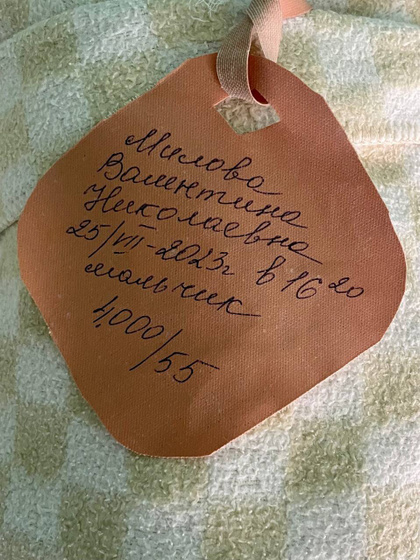 Милова
Валентина
Николаевна
25/VII-2023г в 16 20
мальчик
4000/55